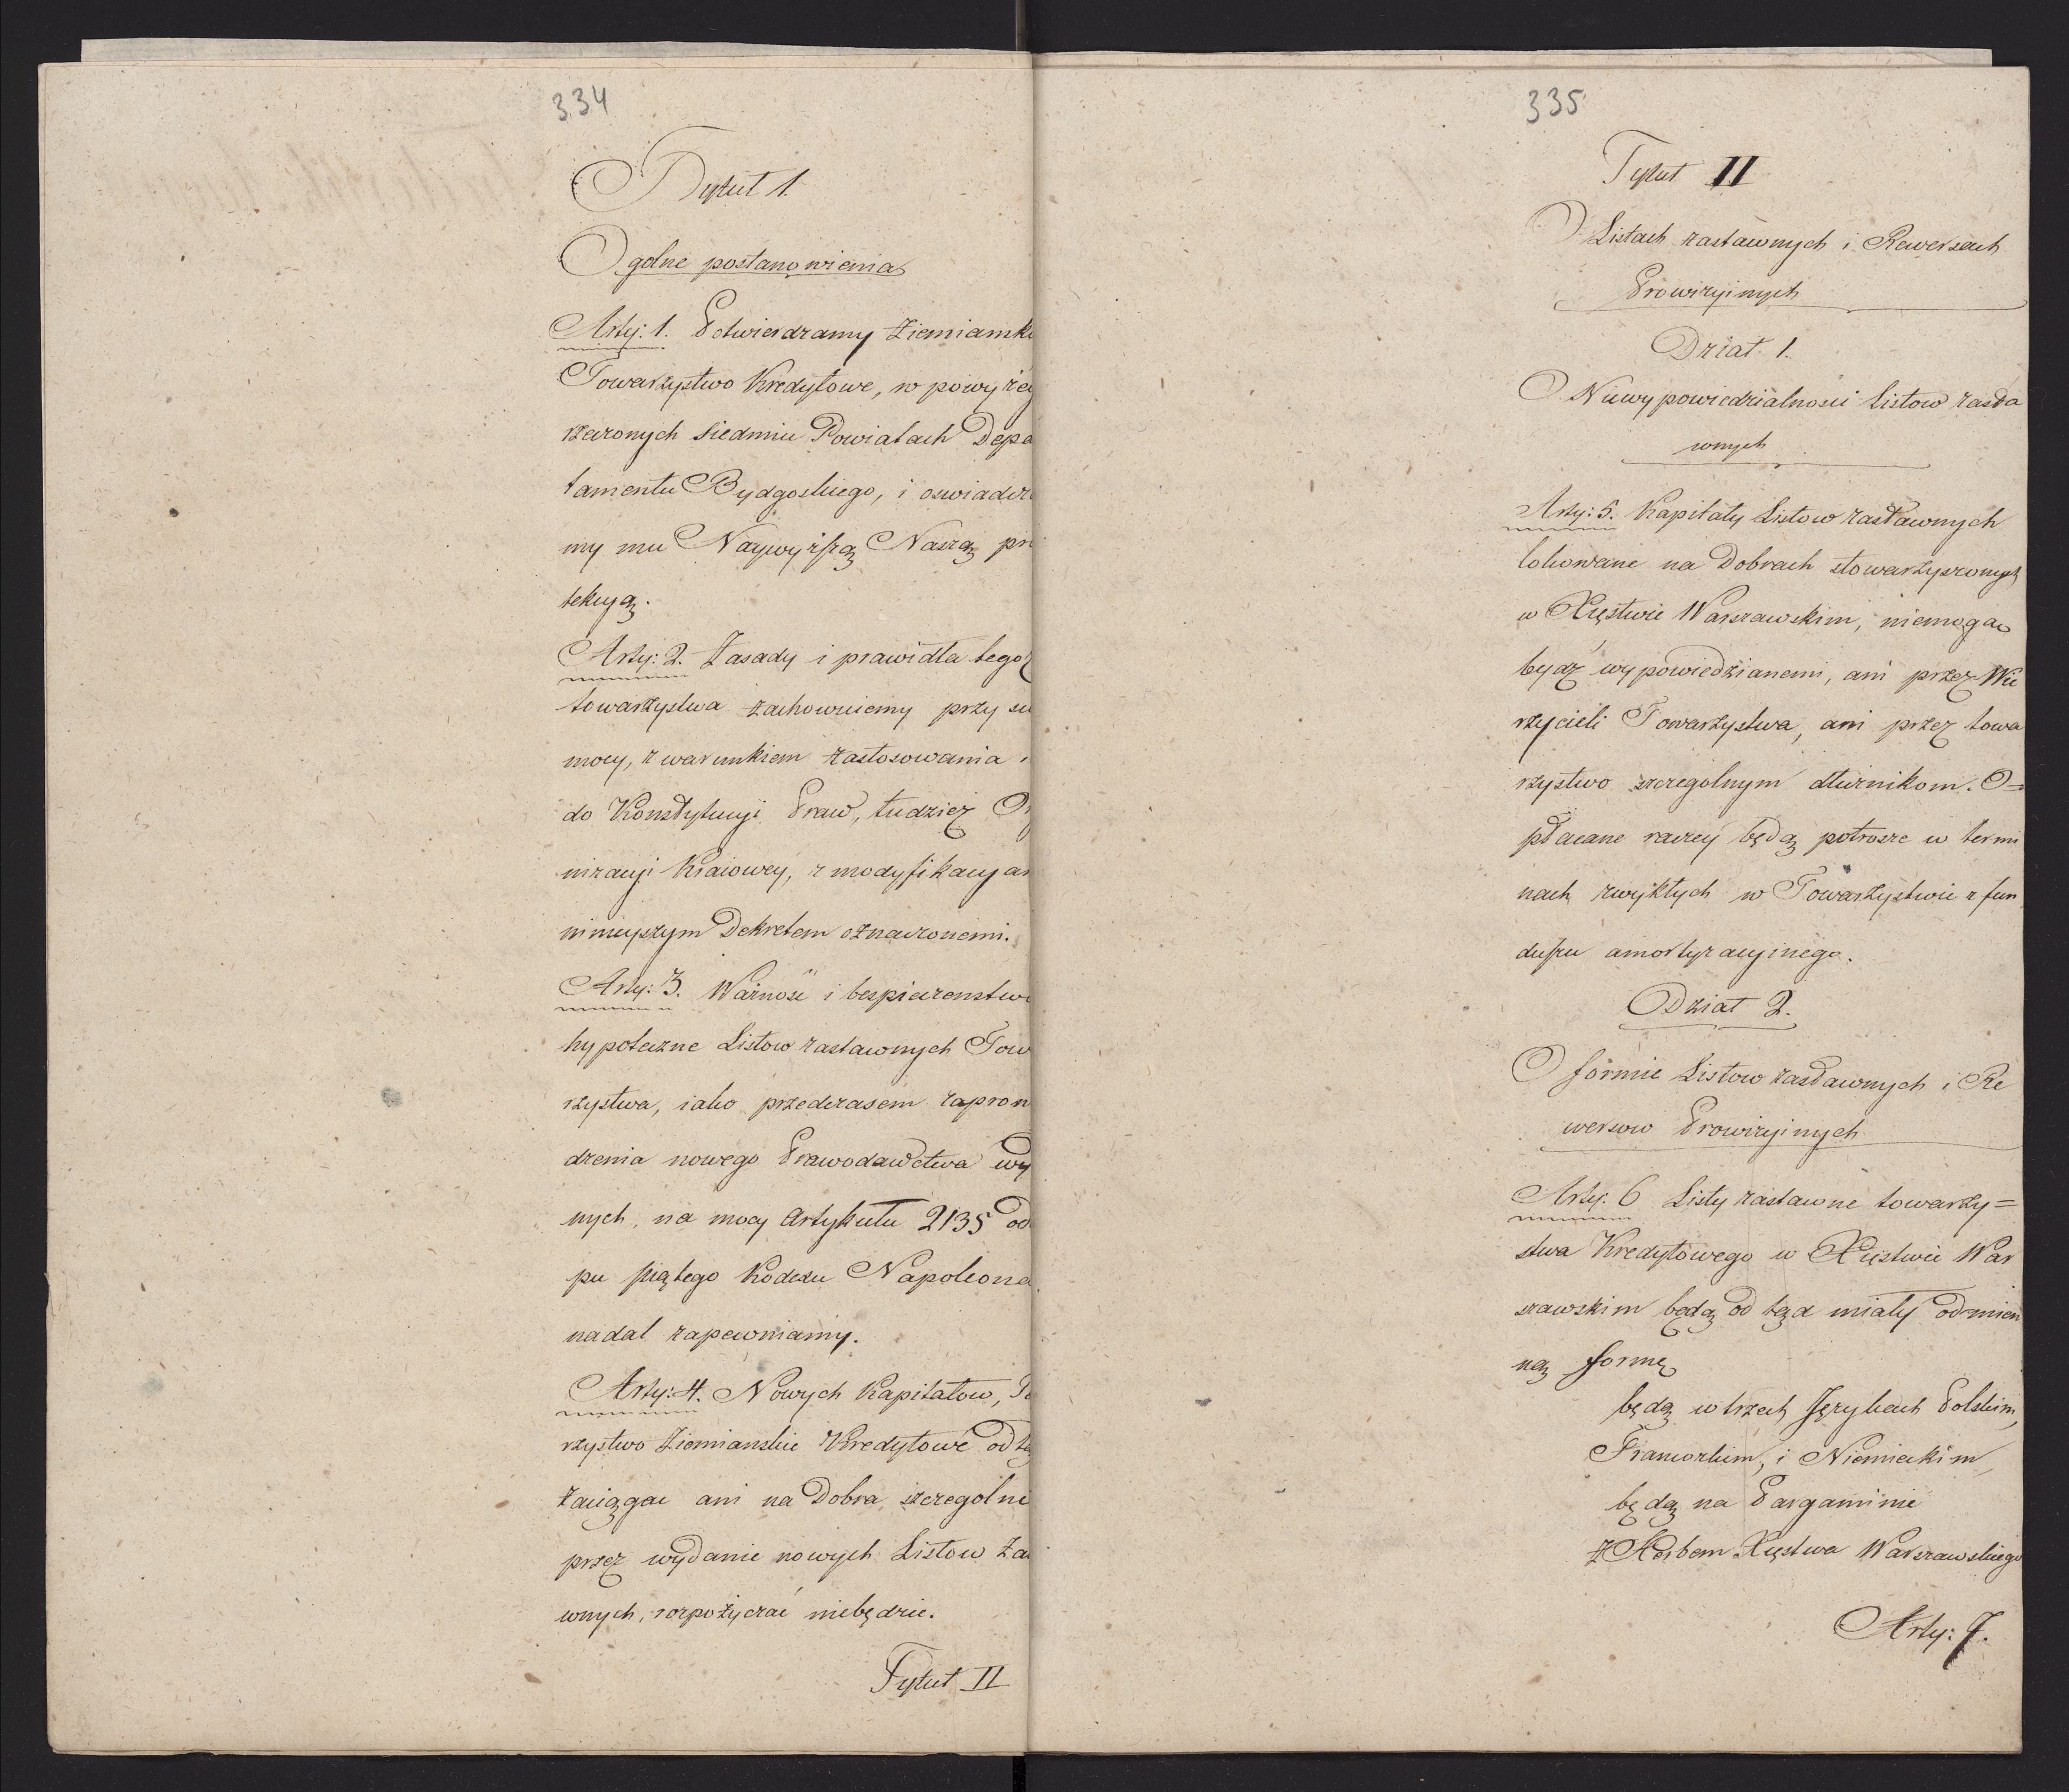 334
Tytuł 1.
Ogolne postanowienia
Arty: 1. Potwierdzamy Ziemiamk
Towarzystwo Kredytowe, w powyżey
rzeczonych siedmiu Powiatach Depa
tamentu Bydgoskiego, i oswiadcz
my mu Naywyższą Naszą pr
tekcyą.
Arty: 2. Zasady i prawidła tegoż
towarzystwa zachowuiemy przy su
mocy, z warunkiem zastosowania
do Konstytucyi Praw, tudzież Or
nizacyi Kraiowey, z modyfikacyam
ninieyszym Dekretem oznaczonemi.
Arty: 3. Ważność i bespieczenstwo
hypoteczne Listow zastawnych Tow
rzystwa, iako przedczasem zaprow
dzenia nowego Prawodawctwa wy
nych, na mocy Artykułu 2135 od
pu piątego Kodexu Napoleona
nadal zapewniamy.
Arty: 4. Nowych Kapitałow, To
rzystwo Ziemianskie Kredytowe odtą
zaciągac ani na Dobra szczegolne
przez wydanie nowych Listow Za
wnych, rozpożyczać niebędzie.
Tytuł II
335
Tytuł II
O Listach zastawnych i Rewersach
Prowizyinych
Dział 1.
O Niewypowiedzialności Listow zasta
wnych
Arty: 5. Kapitały Listow zastawnych
lokowane na Dobrach stowarzyszonych
w Xięstwie Warszawskim, niemogą
bydź wypowiedzianemi, ani przez Wie
rzycieli Towarzystwa, ani przez towa
rzystwo szczegolnym dłużnikom. O=
płacane raczey będą potrosze w termi
nach zwykłych w Towarzystwie z fun
duszu amortyzacyinego.
Dział 2.
O formie Listow zastawnych i Re
wersow Prowizyinych
Arty: 6 Listy zastawne towarzy=
stwa Kredytowego w Xięstwie War
szawskim będą od tąd miały odmien
ną formę
będą w trzech Językach Polskim,
Francuzkim, i Niemieckim
będą na Pargaminie
z Herbem Xięstwa Warszawskiego
Arty: 7.